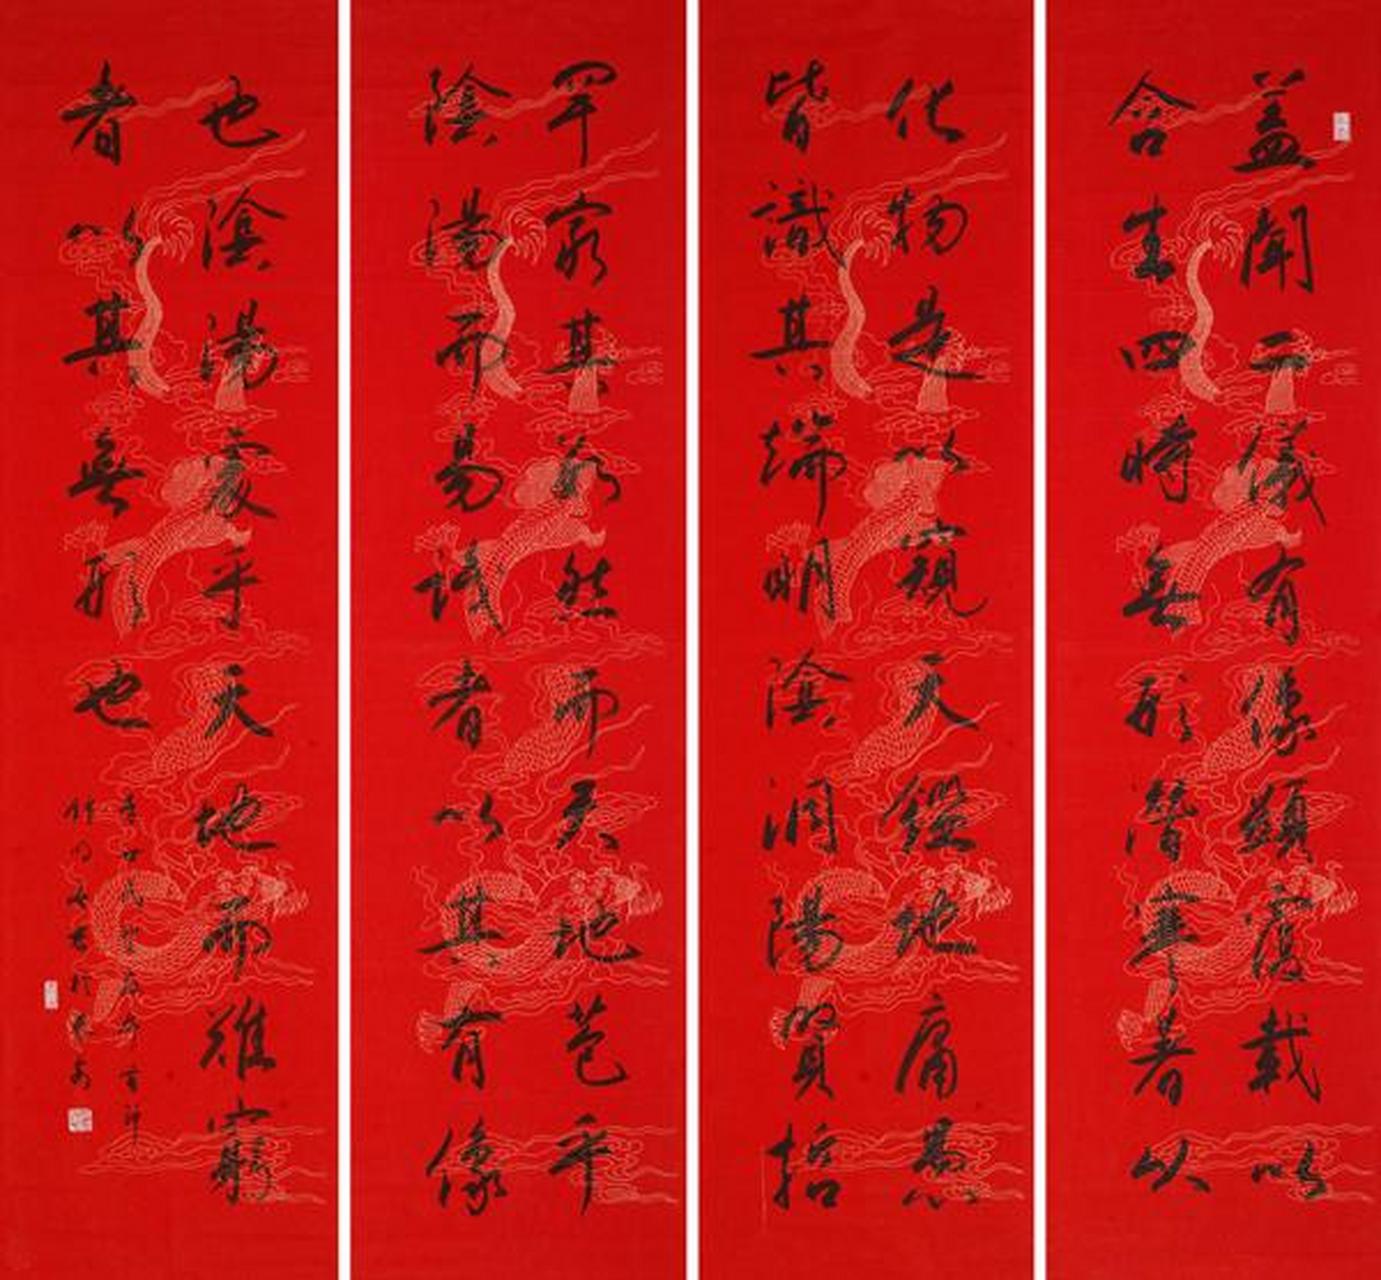 蓋聞二儀有像顯覆載以
含生四時無形潛寒暑以
化物是以窺天鑑地庸愚
皆識其端明陰洞陽賢哲
罕窮其數然而天地苞乎
陰陽而易識者以其有像
也陰陽處乎天地而難窮
者以其無形也